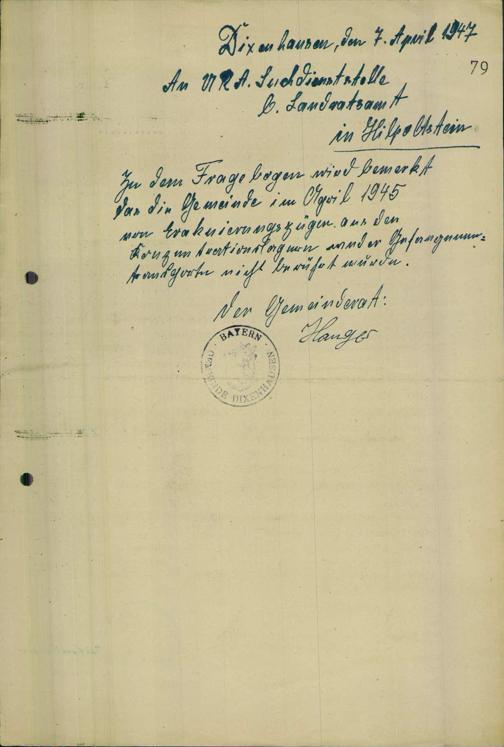 Dixenhausen, den 7. April 1947
79
An UNRRA. Suchdienststelle
b. Landratsamt
in Hilpoltstein
Zu dem Fragebogen wird bemerkt
das die Gemeinde im April 1945
von Evakuierungszügen aus den
Konzentrationslagern und der Gefangenen-
transporte nicht berührt wurde.
Der Gemeinderat:
BAYERN
GEMEINDE DIXENHAUSEN